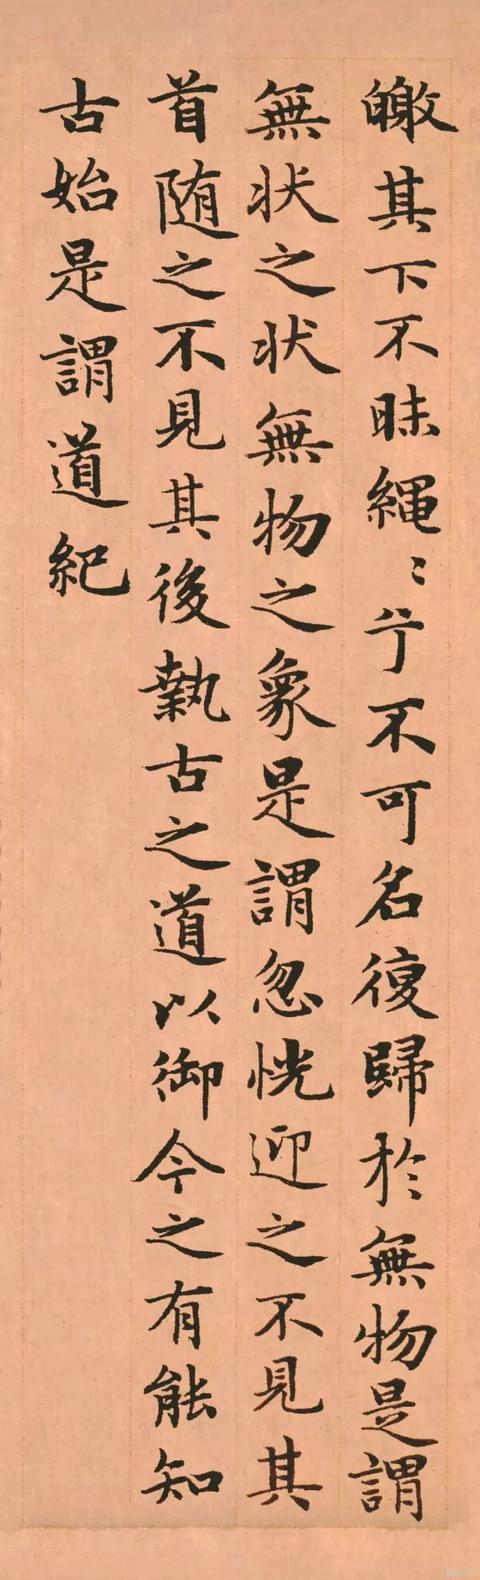 皦其下不昧繩〻兮不可名復歸於無物是謂
無状之状無物之象是謂忽恍迎之不見其
首随之不見其後執古之道以御今之有能知
古始是謂道紀